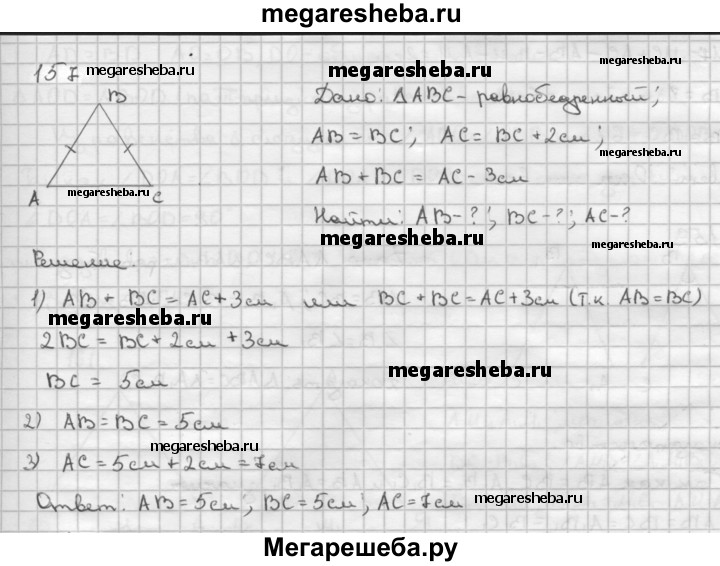 megaresheba.ru
157 megaresheba.ru
megaresheba.ru
megaresheba.ru
B
Дано: ΔABC - равнобедренный;
AB = BC; AC = BC + 2см;
megaresheba.ru
AB + BC = AC - 3см
A megaresheba.ru C
Найти: AB-?; BC-?; AC-?
megaresheba.ru
megaresheba.ru
Решение:
1) AB + BC = AC + 3см или BC + BC = AC + 3см (т.к AB = BC)
megaresheba.ru
2BC = BC + 2см + 3см
megaresheba.ru
BC = 5см
2) AB = BC = 5см
megaresheba.ru
3) AC = 5см + 2см = 7см
Ответ: AB = 5см; BC = 5см; AC = 7см
megaresheba.ru
Мегарешеба.ру